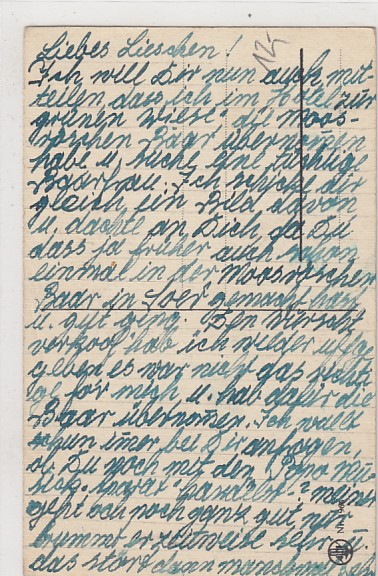 Liebes Lieschen!
12,-
Ich will Dir nun auch mit-
teilen dass ich im Hotel zur
grünen Wiese die Moos-
röschen Baar übernomen
habe u. suche eine tüchtige
Baarfrau. Ich schicke dir
gleich ein Bild davon
u. dachte an Dich da Du
dass ja früher auch schon
einmal in der Moosröschen
Baar in gemacht hast
u. gut ging. Den Wurscht
verkoof hab ich wieder uffge
geben es war nich das richti
ge for mich u. hab dafür die
Baar übernomen. Ich wollt
schun imer bei Dir anfragen,
ob Du noch mit den Mu
handelst?
geht och noch ganz gut nur
brummt er zeitweise sehr u.
das stört dann manchmal